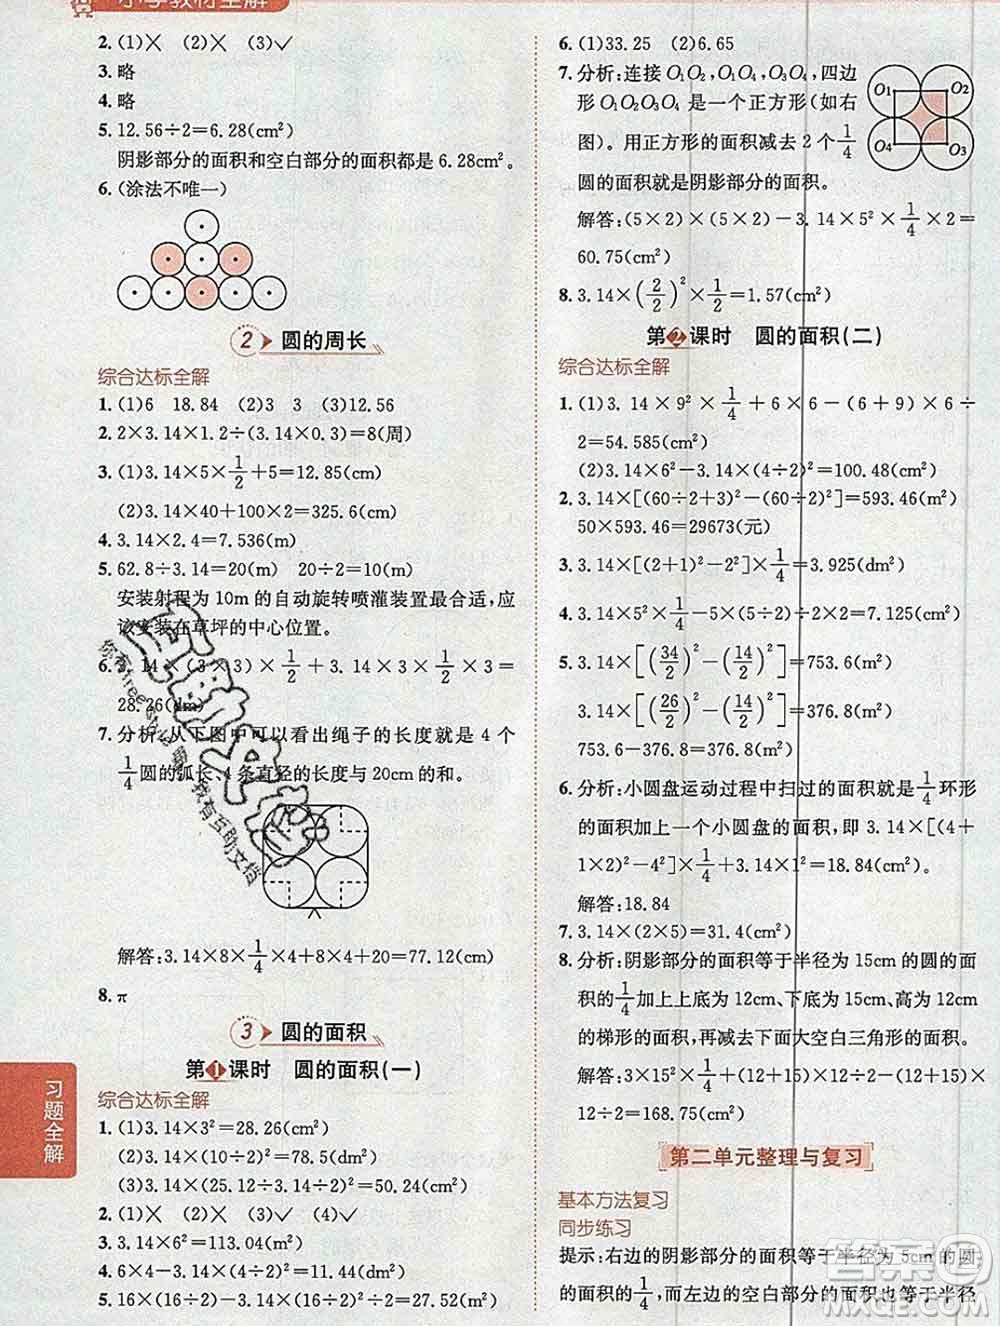 小学教材全解
2. (1)× (2)× (3)✓
3. 略
4. 略
5. 12.56÷2=6.28(cm²)
阴影部分的面积和空白部分的面积都是 6.28cm²。
6. (涂法不唯一)
2 圆的周长
综合达标全解
1. (1)6 18.84 (2)3 3 (3)12.56
2. 2×3.14×1.2÷(3.14×0.3)=8(周)
3. (1)3.14×5×1/2+5=12.85(cm)
(2)3.14×40+100×2=325.6(cm)
4. 3.14×2.4=7.536(m)
5. 62.8÷3.14=20(m) 20÷2=10(m)
安装射程为 10m 的自动旋转喷灌装置最合适,应
该安装在草坪的中心位置。
6. 3.14×(3×3)×1/2+3.14×3×1/2×3=
28.26(dm)
7. 分析:从下图中可以看出绳子的长度就是 4 个
1/4圆的弧长、4 条直径的长度与 20cm 的和。
解答:3.14×8×1/4×4+8×4+20=77.12(cm)
8. π
3 圆的面积
第1课时 圆的面积(一)
综合达标全解
1. (1)3.14×3²=28.26(cm²)
(2)3.14×(10÷2)²=78.5(dm²)
(3)3.14×(25.12÷3.14÷2)²=50.24(cm²)
2. (1)× (2)× (3)✓ (4)✓
3. 3.14×6²=113.04(m²)
4. 6×4-3.14×(4÷2)²÷2=17.72(cm²)
5. 16×(16÷2)-3.14×(16÷2)²÷2=27.52(m²)
习题全解
6. (1)33.25 (2)6.65
7. 分析:连接 O₁O₂,O₁O₄,O₃O₄,四边
形 O₁O₂O₃O₄ 是一个正方形(如右
图)。用正方形的面积减去 2 个1/4
圆的面积就是阴影部分的面积。
O₁ O₂
O₄ O₃
解答:(5×2)×(5×2)-3.14×5²×1/4×2=
60.75(cm²)
8. 3.14×(2/2)²×1/2=1.57(cm²)
第2课时 圆的面积(二)
综合达标全解
1. (1)3.14×9²×1/4+6×6-(6+9)×6÷
2=54.585(cm²)
(2)3.14×6²-3.14×(4÷2)²=100.48(cm²)
2. 3.14×[(60÷2+3)²-(60÷2)²]=593.46(m²)
50×593.46=29673(元)
3. 3.14×[(2+1)²-2²]×1/4=3.925(dm²)
4. 3.14×5²×1/4-5×(5÷2)÷2×2=7.125(cm²)
5. 3.14×[(34/2)²-(14/2)²]=753.6(m²)
3.14×[(26/2)²-(14/2)²]=376.8(m²)
753.6-376.8=376.8(m²)
6. 分析:小圆盘运动过程中扫过的面积就是1/4环形
的面积加上一个小圆盘的面积,即 3.14×[(4+
1×2)²-4²]×1/4+3.14×1²=18.84(cm²)。
解答:18.84
7. 3.14×(2×5)=31.4(cm²)
8. 分析:阴影部分的面积等于半径为 15cm 的圆的面
积的1/4加上上底为 12cm、下底为 15cm、高为 12cm
的梯形的面积,再减去下面大空白三角形的面积。
解答:3×15²×1/4+(12+15)×12÷2-(12+15)×
12÷2=168.75(cm²)
第二单元整理与复习
基本方法复习
同步练习
提示:右边的阴影部分的面积等于半径为 5cm 的圆
的面积的1/4,而左边的空白部分的面积也等于半径